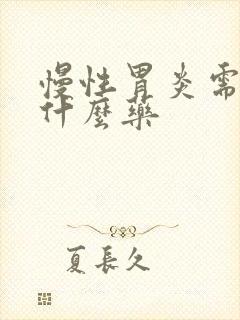 慢性胃炎需
什麼藥
夏長久